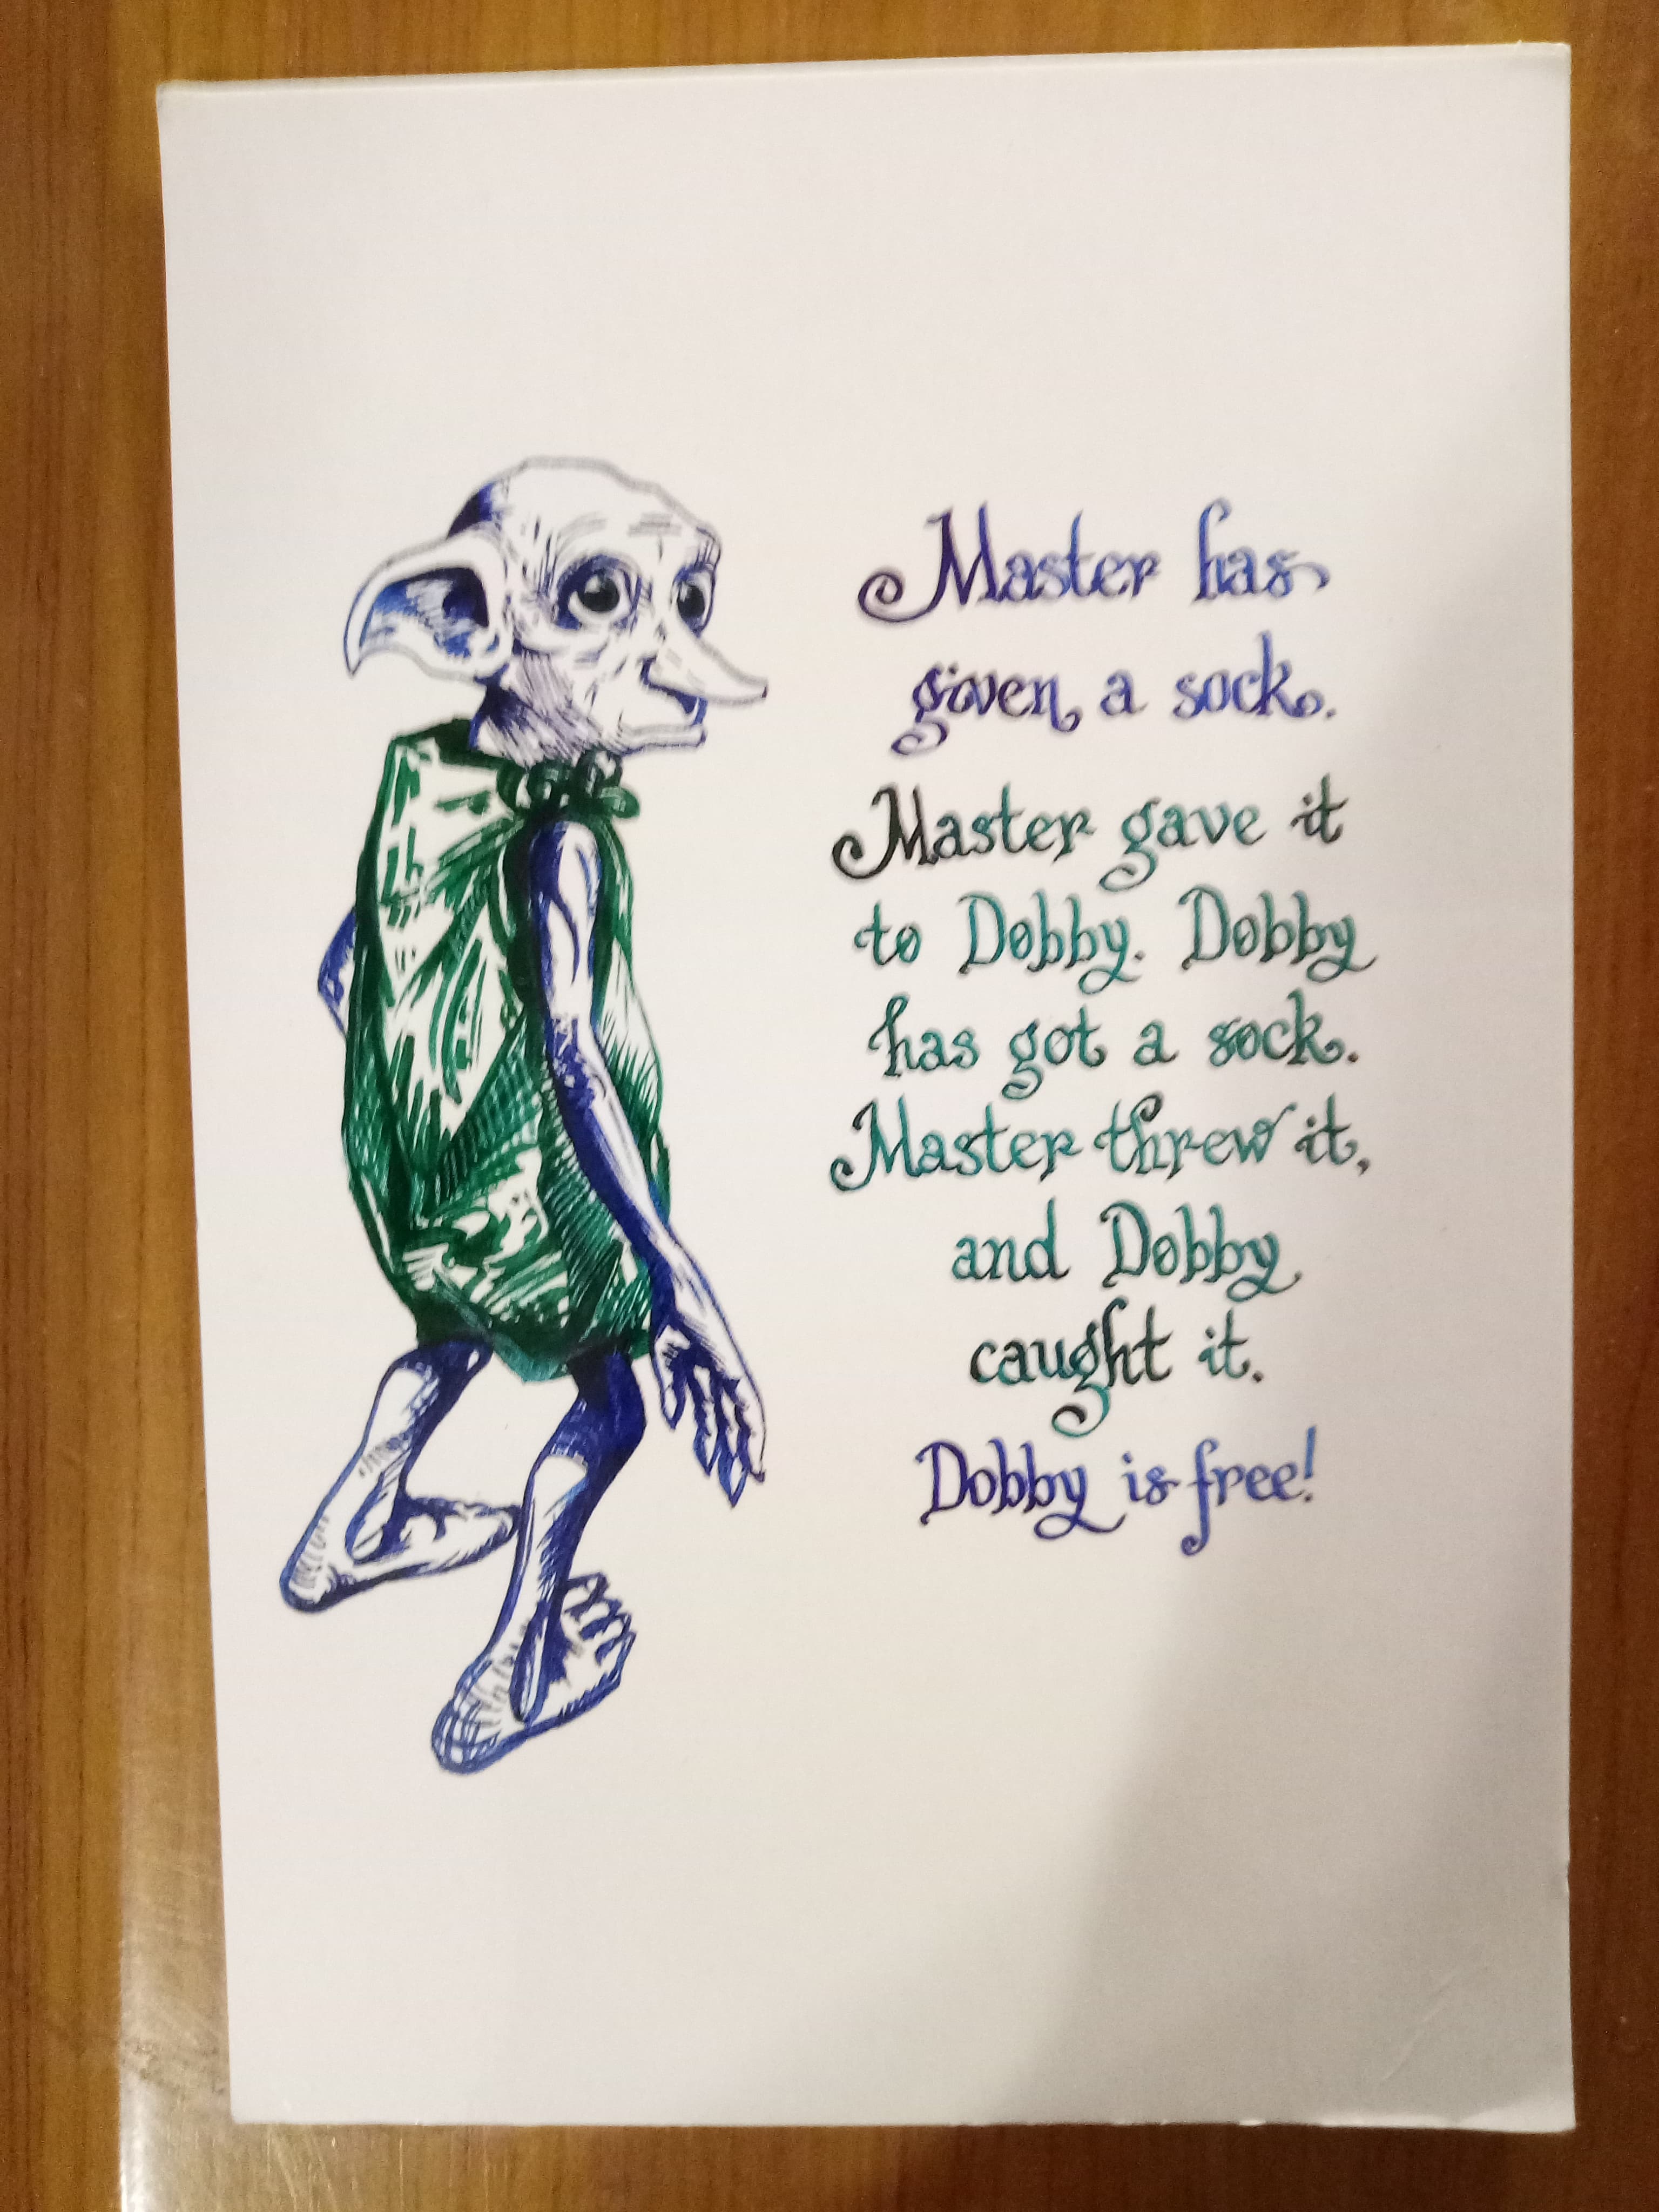 Master has
given a sock.
Master gave it
to Dobby. Dobby
has got a sock.
Master threw it,
and Dobby
caught it.
Dobby is free!